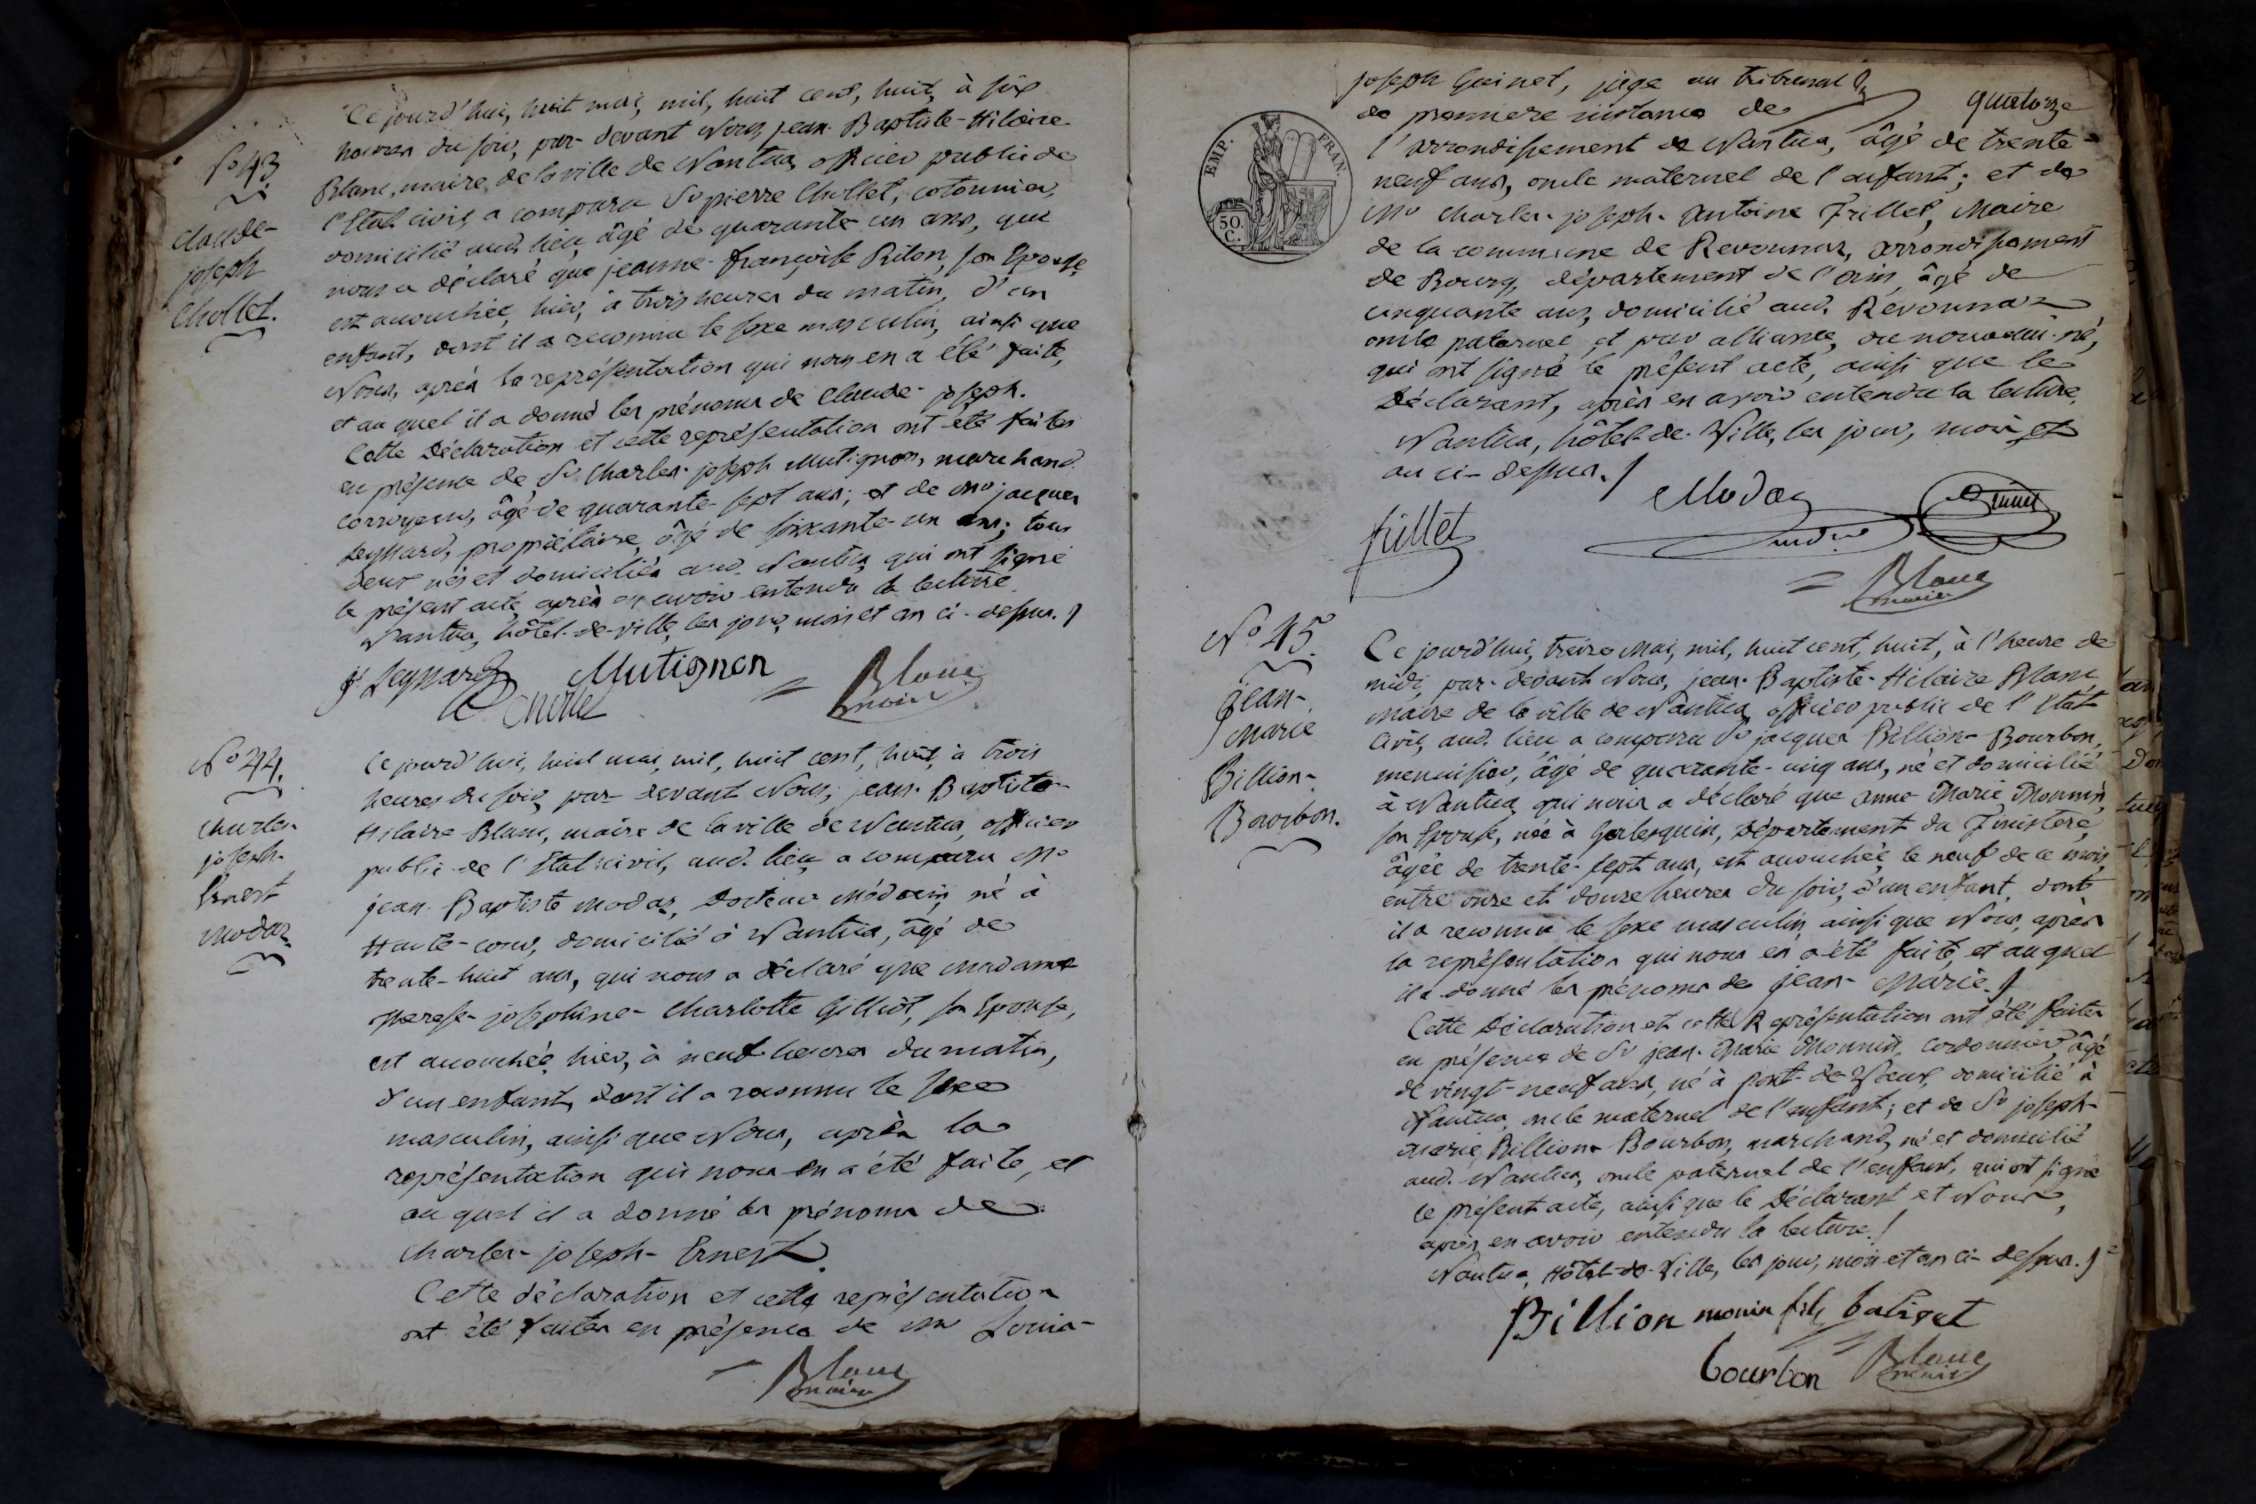 Ce jourd'hui, huit mai, mil, huit cent, huit, à six
heures du soir, par-devant Nous, jean-Baptiste-Hilaire
Blanc, maire de la ville de Nantua, officier public de
l'Etat civil, a comparu Sr pierre Chollet, cotonnier,
domicilié aud. lieu, âgé de quarante-un ans, qui
nous a déclaré que jeanne-françoise Riton, son Epouse,
est accouchée, hier, à trois heures du matin, d'un
enfant, dont il a reconnu le sexe masculin, ainsi que
Nous, après la représentation qui nous en a été faite,
et au quel il a donné les prénoms de Claude-joseph.
Cette Déclaration et cette représentation ont été faites
en présence de Sr Charles-joseph Mutignon, marchand
corroyeur, âgé de quarante-sept ans; et de Mr jacques
Leyssard, propriétaire, âgé de soixante-un ans; tous
deux nés et domiciliés aud. Nantua, qui ont signé
le présent acte après en avoir entendu la lecture.
Nantua, hôtel-de-ville, les jour, mois et an ci-dessus.
No 43
Claude-
joseph
Chollet.
js Leyssard Mutignon Blanc
Chollet maire
No 44.
Charles-
joseph-
Ernest
Modas
Ce jourd'hui, huit mai, mil, huit cent, huit, à trois
heures du soir, par-devant Nous, jean-Baptiste-
Hilaire Blanc, maire de la ville de Nantua, officier
public de l'Etat civil, aud. lieu, a comparu Mr
jean-Baptiste Modas, Docteur Médecin, né à
Haute-cour, domicilié à Nantua, âgé de
trente-huit ans, qui nous a déclaré que madame
Therese-josephine-Charlotte, son Epouse,
est accouchée, hier, à neuf heures du matin,
d'un enfant, dont il a reconnu le sexe
masculin, ainsi que Nous, après la
représentation qui nous en a été faite, et
au quel il a donné les prénoms de
Charles-joseph-Ernest.
Cette déclaration et cette représentation
ont été faites en présence de Mr Louis-
Blanc
maire
quatorze
EMP. FRAN.
50.
C.
joseph Guinet, juge au tribunal
de premiere instance de
l'arrondissement de Nantua, âgé de trente-
neuf ans, oncle maternel de l'enfant; et de
Mr Charles-joseph-Antoine Frillet, Maire
de la commune de Revonnas, arrondissement
de Bourg, département de l'ain, âgé de
cinquante ans, domicilié aud. Revonnas
oncle paternel et par alliance, du nouveau-né,
qui ont signé le présent acte, ainsi que le
Déclarant, après en avoir entendu la lecture.
Nantua, hôtel-de-Ville, les jour, mois et
an ci-dessus.
Frillet Modas Guinet
Blanc
maire
No 45.
Jean-
Marie
Billion-
Bourbon.
Ce jourd'hui, treize Mai, mil, huit cent, huit, à l'heure de
midi, par-devant Nous, jean-Baptiste-Hilaire Blanc
Maire de la ville de Nantua, officier public de l'Etat
Civil, aud. lieu a comparu Sr jacques Billion-Bourbon,
menuisier, âgé de quarante-cinq ans, né et domicilié
à Nantua, qui nous a déclaré que Anne Marie Monnin,
son Epouse, née à Gerlesquin, Département du Finistère,
âgée de trente-sept ans, est accouchée, le neuf de ce mois,
entre onze et douze heures du soir, d'un enfant, dont
il a reconnu le sexe masculin, ainsi que Nous, après
la représentation qui nous en a été faite, et auquel
il a donné les prénoms de Jean-Marie.
Cette Déclaration et cette Représentation ont été faites
en présence de Sr jean-Marie Monnin, cordonnier, âgé
de vingt-neuf ans, né à pont-de-Vaux, domicilié à
Nantua, oncle maternel de l'enfant; et de Sr joseph-
marie Billion-Bourbon, marchand, né et domicilié
aud. Nantua, oncle paternel de l'enfant, qui ont signé
le présent acte, ainsi que le Déclarant et Nous,
après en avoir entendu la lecture.
Nantua, Hôtel-de-Ville, les jour, mois et an ci-dessus.
Billion monin fils
bourbon Blanc
maire